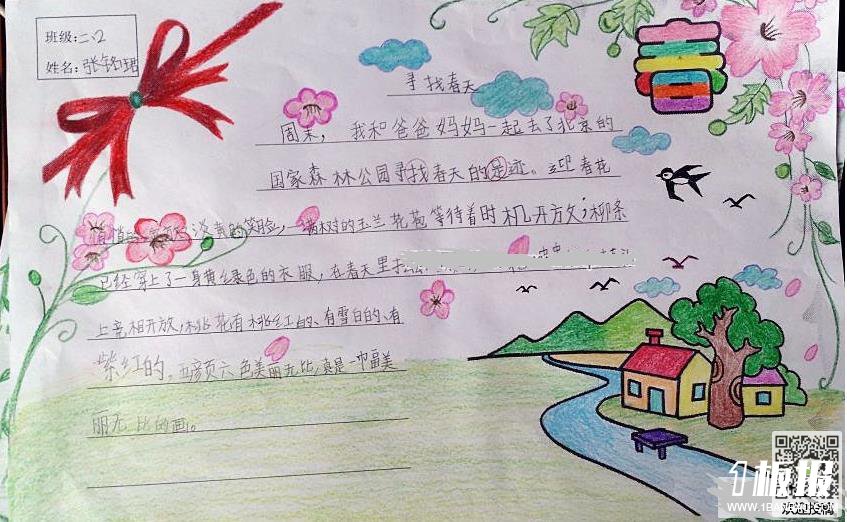 班级:二、2
姓名:张铭珺
春
寻找春天
周末，我和爸爸妈妈一起去了北京的
国家森林公园寻找春天的足迹。迎春花
悄悄 淡黄的笑脸，一满树的玉兰花苞等待着时机开放；柳条
已经穿上了一身黄绿色的衣服，在春天里
上竞相开放，桃花有桃红的、有雪白的、有
紫红的。五颜六色美丽无比，真是一幅美
丽无比的画。
1板报
欢迎投稿